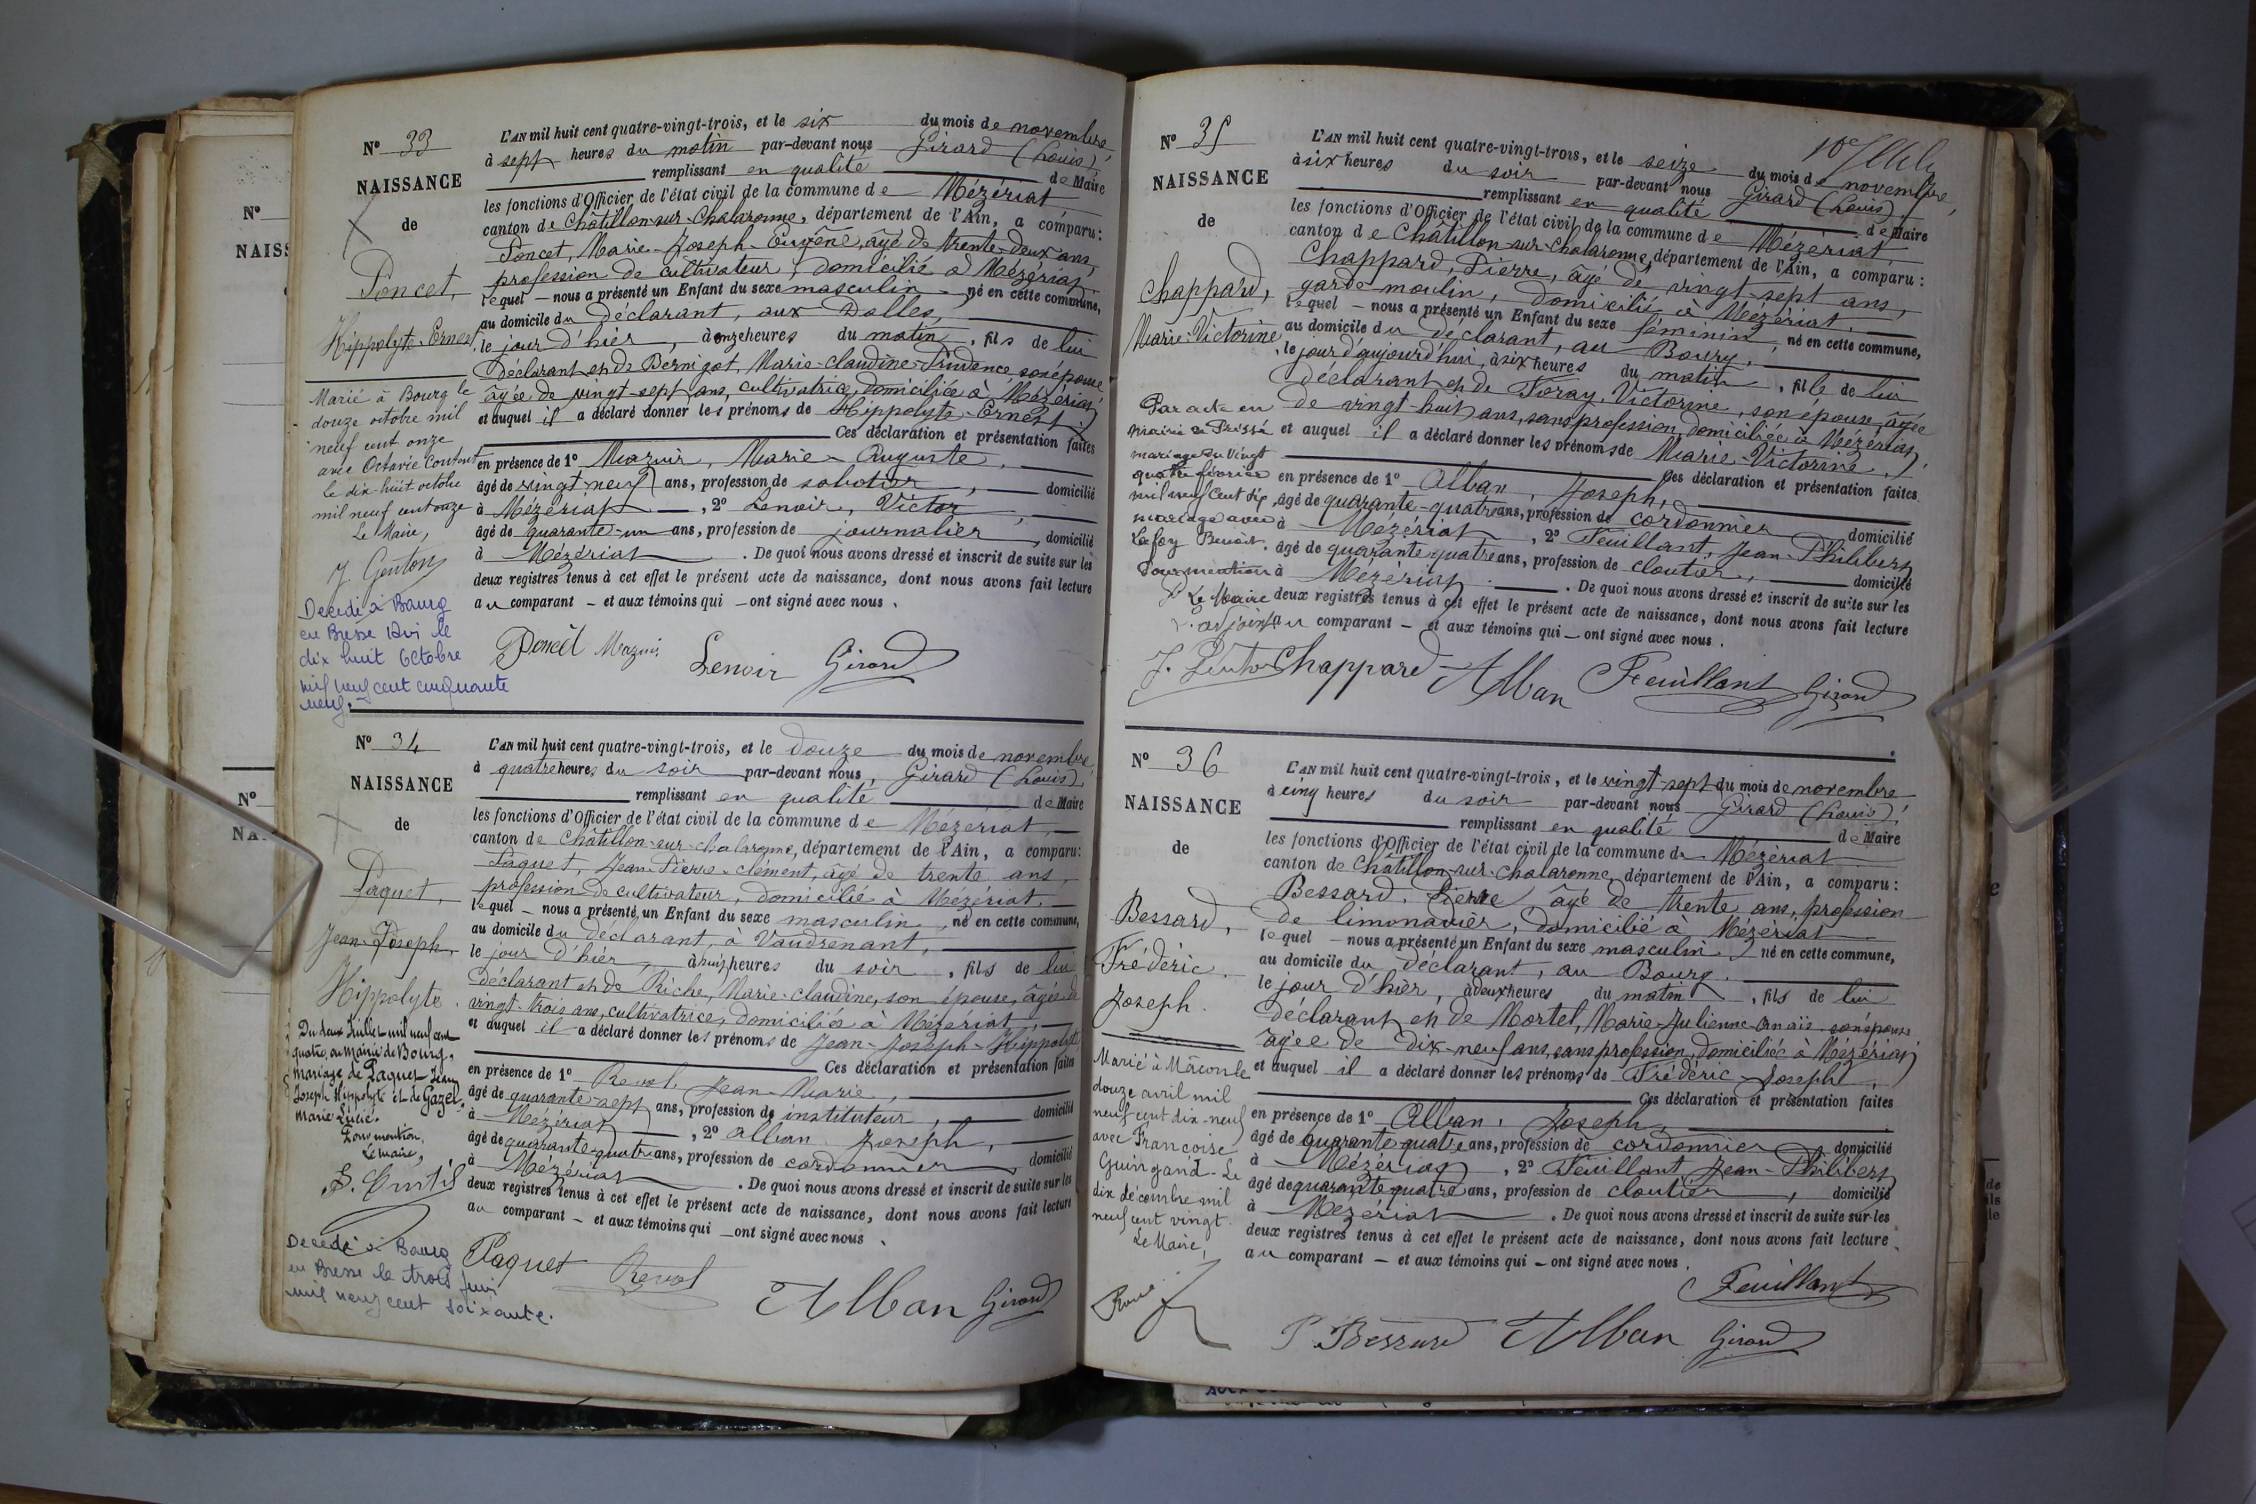 N° 33
NAISSANCE
de
Poncet,
Hippolyte-Ernest
Marié à Bourg le
douze octobre mil
neuf cent onze
avec Octavie Contout
le dix huit octobre
mil neuf cent onze
Le Maire,
J. Genton
Décédé à Bourg
en Bresse (Ain) le
dix huit Octobre
mil neuf cent cinquante
neuf.
L'AN mil huit cent quatre-vingt-trois, et le six du mois de novembre,
à sept heures du matin par-devant nous Girard (Louis),
remplissant en qualité de Maire
les fonctions d'Officier de l'état civil de la commune de Mézériat
canton de Châtillon-sur-Chalaronne, département de l'Ain, a comparu:
Poncet, Marie-Joseph-Eugène, âgé de trente-deux ans,
profession de cultivateur, domicilié à Mézériat,
lequel – nous a présenté un Enfant du sexe masculin – né en cette commune,
au domicile du déclarant, aux Dalles,
le jour d'hier, à onze heures du matin, fils de lui
déclarant et de Bernigot, Marie-Claudine-Prudence, son épouse
âgée de vingt-sept ans, cultivatrice, domiciliée à Mézériat,
et auquel il a déclaré donner les prénoms de Hippolyte-Ernest.
Ces déclaration et présentation faites
en présence de 1° Mazuir, Marie-Auguste,
âgé de vingt neuf ans, profession de sabotier, domicilié
à Mézériat, 2° Lenoir, Victor,
âgé de quarante-un ans, profession de journalier, domicilié
à Mézériat. De quoi nous avons dressé et inscrit de suite sur les
deux registres tenus à cet effet le présent acte de naissance, dont nous avons fait lecture
au comparant – et aux témoins qui – ont signé avec nous.
Poncet Mazuir Lenoir Girard
N° 34
NAISSANCE
de
Paquet,
Jean-Joseph
Hippolyte.
Du deux Juillet mil neuf cent
quatre, en mairie de Bourg,
mariage de Paquet Jean
Joseph Hippolyte et de Gazel
Marie Lucie.
Pour mention,
Le maire,
Décédé à Bourg
en Bresse le trois Juin
mil neuf cent soixante.
L'AN mil huit cent quatre-vingt-trois, et le douze du mois de novembre,
à quatre heures du soir par-devant nous, Girard (Louis),
remplissant en qualité de Maire
les fonctions d'Officier de l'état civil de la commune de Mézériat,
canton de Châtillon-sur-Chalaronne, département de l'Ain, a comparu:
Paquet, Jean-Pierre-Clément, âgé de trente ans,
profession de cultivateur, domicilié à Mézériat,
lequel – nous a présenté un Enfant du sexe masculin, né en cette commune,
au domicile du déclarant, à Vaudrenant,
le jour d'hier, à huit heures du soir, fils de lui
déclarant et de Riche, Marie-Claudine, son épouse, âgée de
vingt-trois ans, cultivatrice, domiciliée à Mézériat
et auquel il a déclaré donner les prénoms de Jean-Joseph-Hippolyte
Ces déclaration et présentation faites
en présence de 1° Revol, Jean-Marie,
âgé de quarante-sept ans, profession de instituteur, domicilié
à Mézériat, 2° Alban Joseph,
âgé de quarante-quatre ans, profession de cordonnier, domicilié
à Mézériat. De quoi nous avons dressé et inscrit de suite sur les
deux registres tenus à cet effet le présent acte de naissance, dont nous avons fait lecture
au comparant – et aux témoins qui – ont signé avec nous.
Paquet Revol
Alban Girard
N° 35
NAISSANCE
de
Chappard,
Marie-Victorine
Par acte en
mairie de Prissé
mariage du vingt
quatre février
mil neuf cent dix
mariage avec
Lafay Benoit.
Pour mention
Le Maire
adjoint
L'AN mil huit cent quatre-vingt-trois, et le seize du mois de novembre,
à six heures du soir par-devant nous Girard (Louis),
remplissant en qualité de Maire
les fonctions d'Officier de l'état civil de la commune de Mézériat,
canton de Châtillon-sur-Chalaronne, département de l'Ain, a comparu:
Chappard, Pierre, âgé de vingt-sept ans,
garde moulin, domicilié à Mézériat.
lequel – nous a présenté un Enfant du sexe féminin, né en cette commune,
au domicile du déclarant, au Bourg,
le jour d'aujourd'hui, à six heures du matin, fille de lui
déclarant et de Foray, Victorine, son épouse, âgée
de vingt-huit ans, sans profession, domiciliée à Mézériat,
et auquel il a déclaré donner les prénoms de Marie-Victorine.
Ces déclaration et présentation faites
en présence de 1° Alban, Joseph,
âgé de quarante-quatre ans, profession de cordonnier domicilié
à Mézériat, 2° Feuillant, Jean-Philibert
âgé de quarante quatre ans, profession de cloutier, domicilié
à Mézériat. De quoi nous avons dressé et inscrit de suite sur les
deux registres tenus à cet effet le présent acte de naissance, dont nous avons fait lecture
au comparant – et aux témoins qui – ont signé avec nous.
Chappard Alban Feuillant Girard
N° 36
NAISSANCE
de
Bessard,
Frédéric.
Joseph.
Marié à Mâcon le
douze avril mil
neuf cent dix-neuf
avec Françoise
Guingand. Le
dix décembre mil
neuf cent vingt.
Le Maire,
L'AN mil huit cent quatre-vingt-trois, et le vingt-sept du mois de novembre
à cinq heures du soir par-devant nous Girard (Louis),
remplissant en qualité de Maire
les fonctions d'Officier de l'état civil de la commune de Mézériat
canton de Châtillon-sur-Chalaronne, département de l'Ain, a comparu:
Bessard, Pierre, âgé de trente ans, profession
de limonadier, domicilié à Mézériat
lequel – nous a présenté un Enfant du sexe masculin, né en cette commune,
au domicile du déclarant, au Bourg.
le jour d'hier, à deux heures du matin, fils de lui
déclarant et de Mortel, Marie-Julienne-Anaïs son épouse
âgée de dix-neuf ans, sans profession, domiciliée à Mézériat
et auquel il a déclaré donner les prénoms de Frédéric-Joseph,
Ces déclaration et présentation faites
en présence de 1° Alban, Joseph,
âgé de quarante quatre ans, profession de cordonnier domicilié
à Mézériat, 2° Feuillant Jean-Philibert
âgé de quarante quatre ans, profession de cloutier, domicilié
à Mézériat. De quoi nous avons dressé et inscrit de suite sur les
deux registres tenus à cet effet le présent acte de naissance, dont nous avons fait lecture
au comparant – et aux témoins qui – ont signé avec nous.
Feuillant
P. Bessard Alban Girard